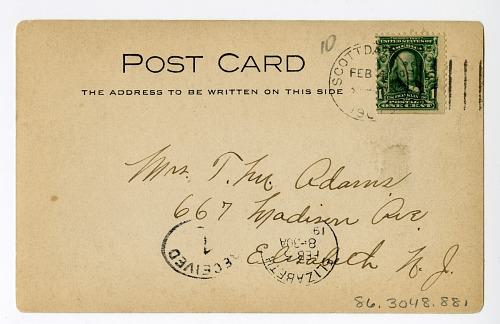 10
POST CARD
THE ADDRESS TO BE WRITTEN ON THIS SIDE
SCOTTDA
FEB
190
UNITED STATES OF AMERICA
POSTAGE
1 ONE CENT 1
Mrs. T. M. Adams
667 Madison Ave.
Elizabeth N. J.
RECEIVED
1
ELIZABETH
FEB
8-30A
19
86.3048.881